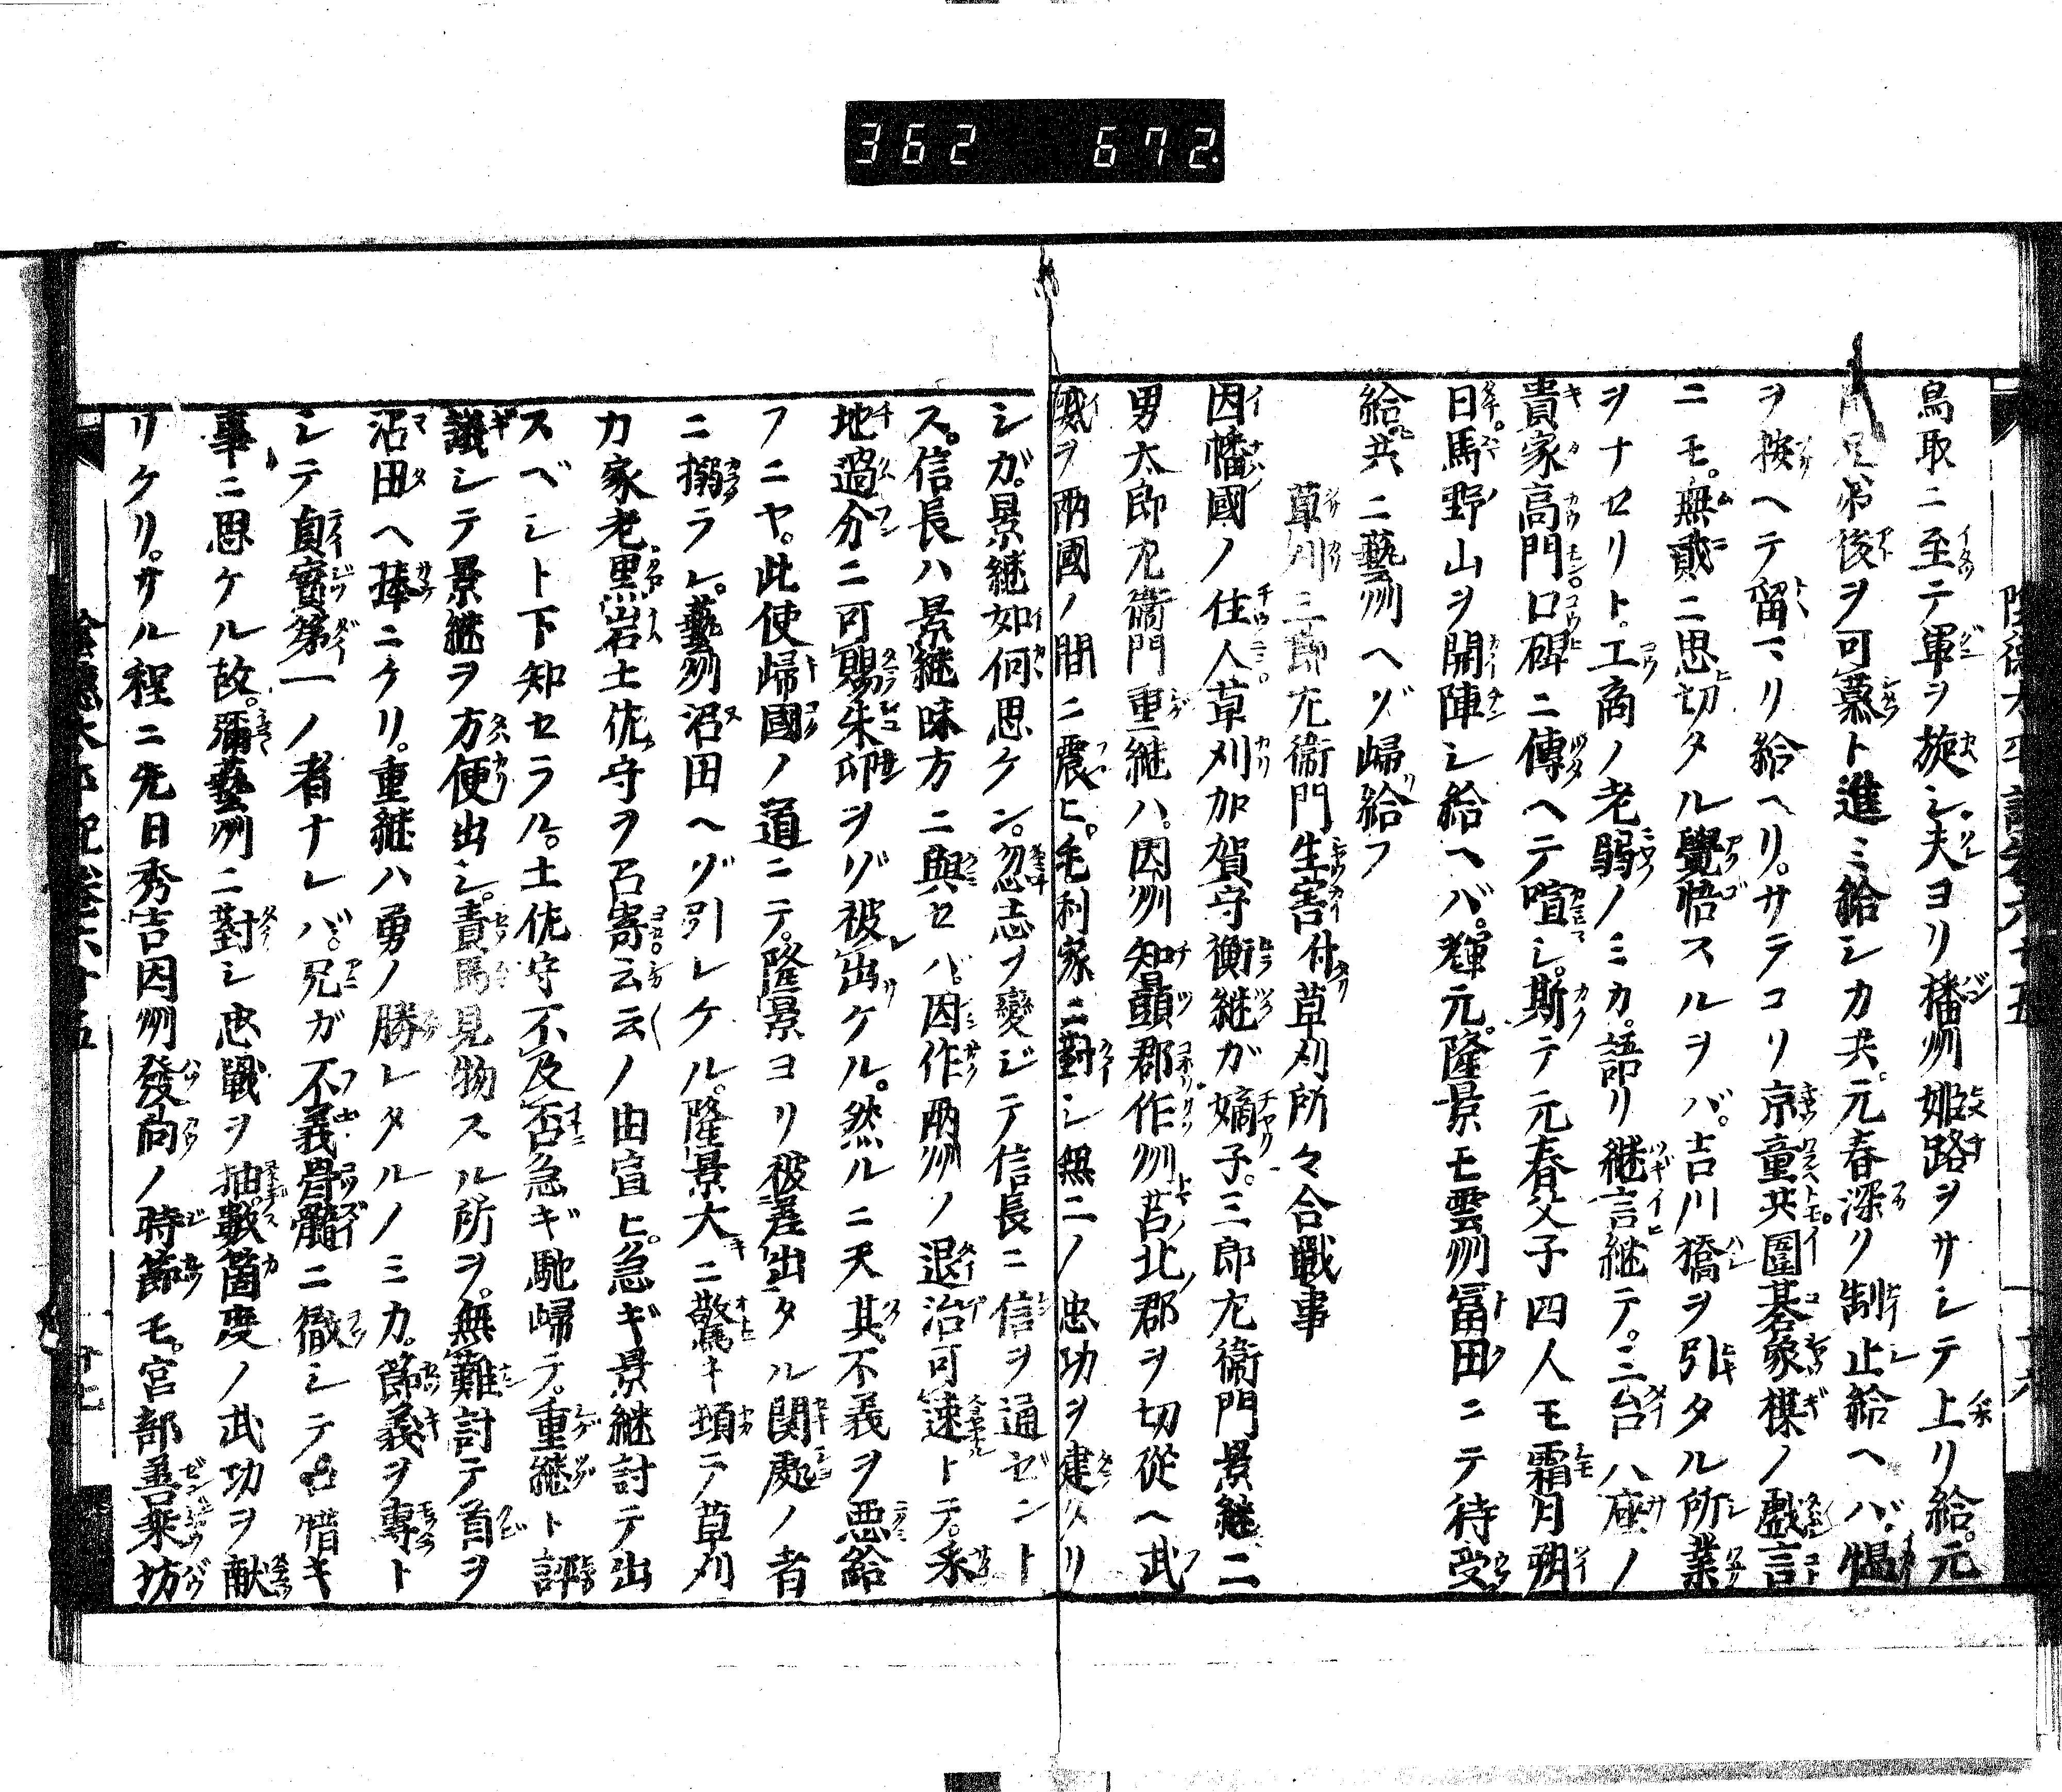 362 672.
鳥取ニ至テ軍ヲ旋シ夫ヨリ播州姫路ヲサシテ上リ給。元
兄弟後ヲ可慕ト進ミ給シカ共。元春深ク制止給ヘバ。
ヲ按ヘテ留マリ給ヘリ。サテコリ京童共圍碁象棋ノ戲言
ニモ。無貳ニ思切タル覺悟スルヲバ。吉川橋ヲ引タル所業
ヲナセリト。工商ノ老弱ノミカ。語リ継言継テ。三台八座ノ
貴家高門口碑ニ傳ヘテ喧シ。斯テ元春父子四人モ霜月朔
日馬野山ヲ開陣シ給ヘバ。輝元。隆景モ雲州冨田ニテ待受
給。共ニ藝州ヘゾ帰給フ
草刈三郎左衛門生害付草刈所々合戰事
因幡國ノ住人草刈加賀守衡継ガ嫡子。三郎左衛門景継二
男太郎左衛門重継ハ。因州知頭郡作州苫北郡ヲ切從ヘ武
威ヲ兩國ノ間ニ震ヒ。毛利家ニ對シ無二ノ忠功ヲ建タリ
シガ。景継如何思ケン。忽志ヲ變ジテ信長ニ信ヲ通ゼント
ス。信長ハ景継味方ニ與セバ。因作兩州ノ退治可速トテ。釆
地過分ニ可賜朱印ヲゾ被出ケル。然ルニ天其不義ヲ悪給
フニヤ。此使帰國ノ道ニテ。隆景ヨリ被差出タル関處ノ者
ニ搦ラレ。藝州沼田ヘゾ引レケル。隆景大ニ驚キ頓テ草刈
カ家老黒岩土佐守ヲ召寄云云ノ由宣ヒ。急ギ景継討テ出
スベシト下知セラル。土佐守不及否急ギ馳帰テ。重継ト評
議シテ景継ヲ方便出シ。責馬見物スル所ヲ。無難討テ首ヲ
沼田ヘ捧ニケリ。重継ハ勇ノ勝レタルノミカ。節義ヲ專ト
シテ貞實第一ノ者ナレバ。兄ガ不義骨髓ニ徹シテ口惜キ
事ニ思ケル故。彌藝州ニ對シ忠戰ヲ抽。數箇度ノ武功ヲ献
リケリ。サル程ニ先日秀吉因州發向ノ時節モ。宮部善乗坊